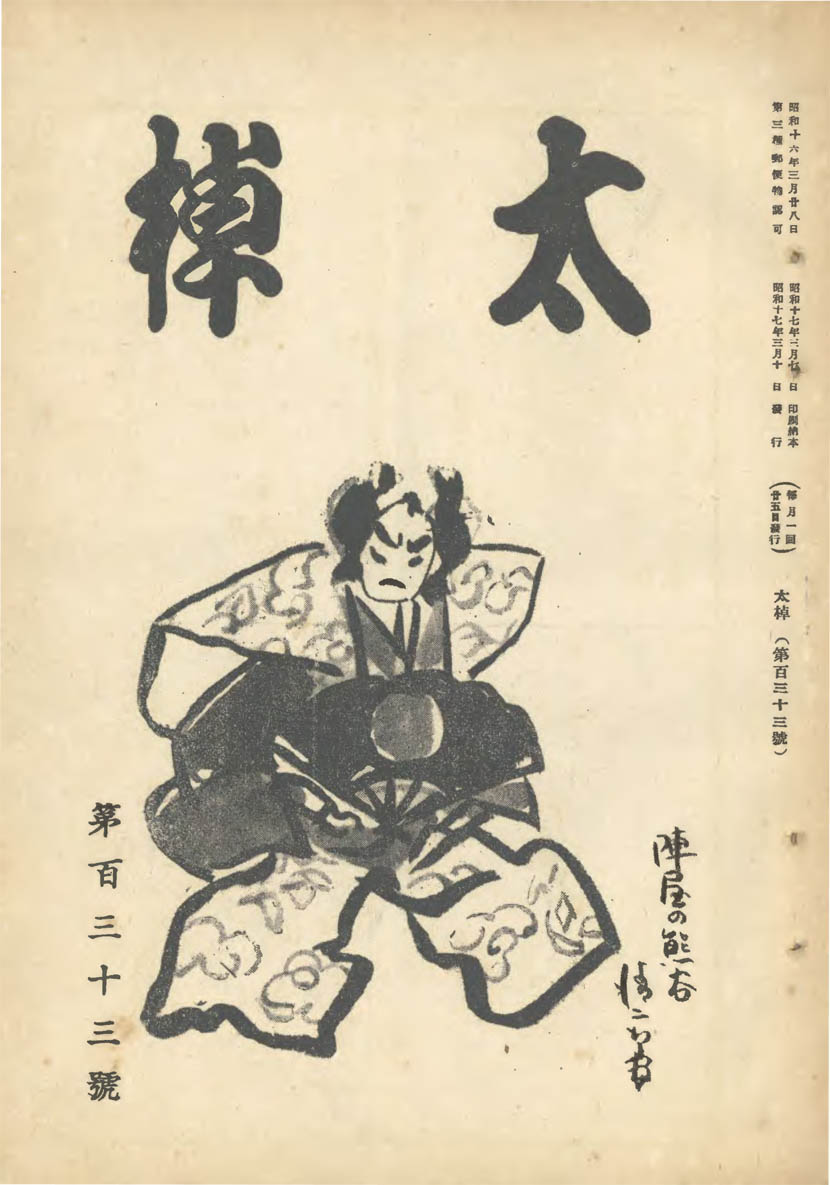 太棹
昭和十六年三月廿八日
第三種郵便物認可
昭和十七年三月七日印刷納本
昭和十七年三月十日發行
(每月一回
廿五日發行)
太棹(第百三十三號)
陣屋の熊谷
第百三十三號